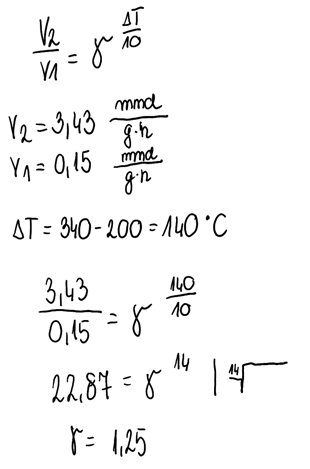 V2/V1 = γ^(ΔT/10)
V2 = 3,43 mmol/g·h
V1 = 0,15 mmol/g·h
ΔT = 340 - 200 = 140 °C
3,43/0,15 = γ^(140/10)
22,87 = γ^14 | ¹⁴√
γ = 1,25